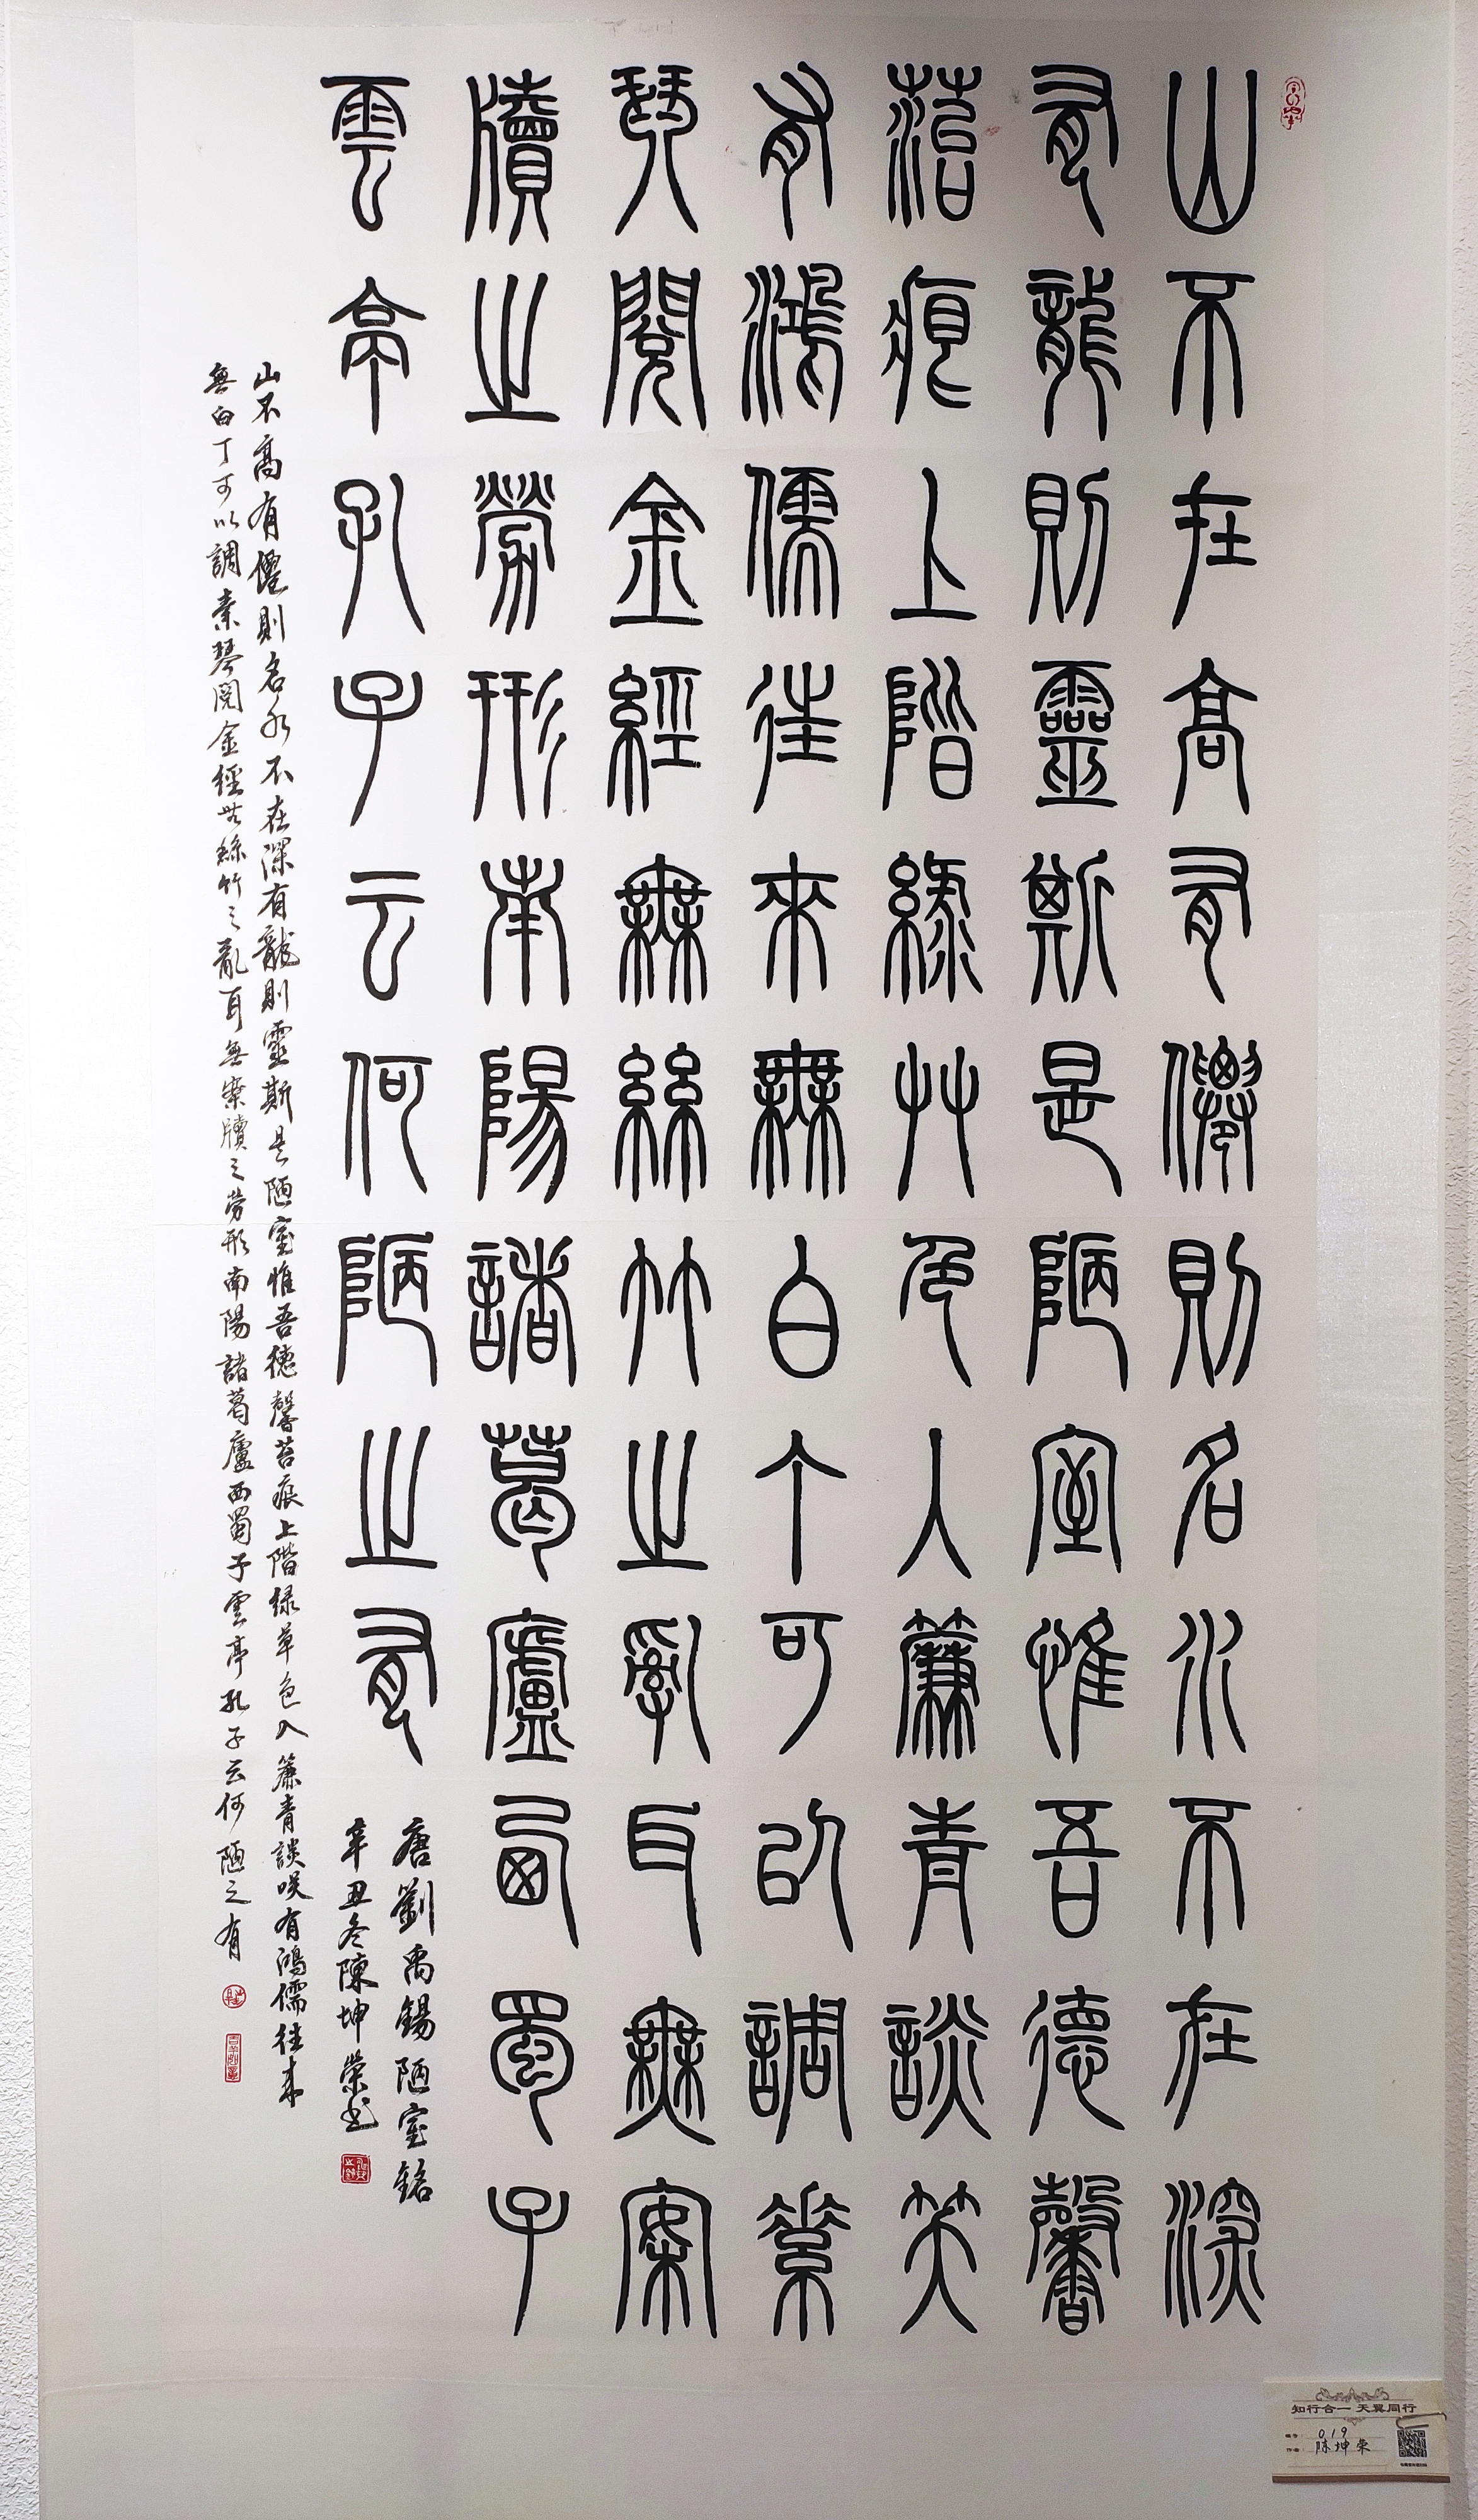 山不在高有僊則名水不在深
有龍則靈斯是陋室惟吾德馨
菭痕上階綠艸色入簾青談笑
有鴻儒往來無白丁可以調素
琴閱金經無絲竹之亂耳無案
牘之勞形南陽諸葛廬西蜀子
雲亭孔子云何陋之有
唐劉禹錫陋室銘
辛丑冬陳坤榮書
山不高有僊則名水不在深有龍則靈斯是陋室惟吾德馨苔痕上階绿草色入簾青談咲有鴻儒往来
無白丁可以調素琴閱金經無絲竹之亂耳無案牘之劳形南陽諸葛廬西蜀子雲亭孔子云何陋之有
知行合一 天翼同行
019
陈坤荣